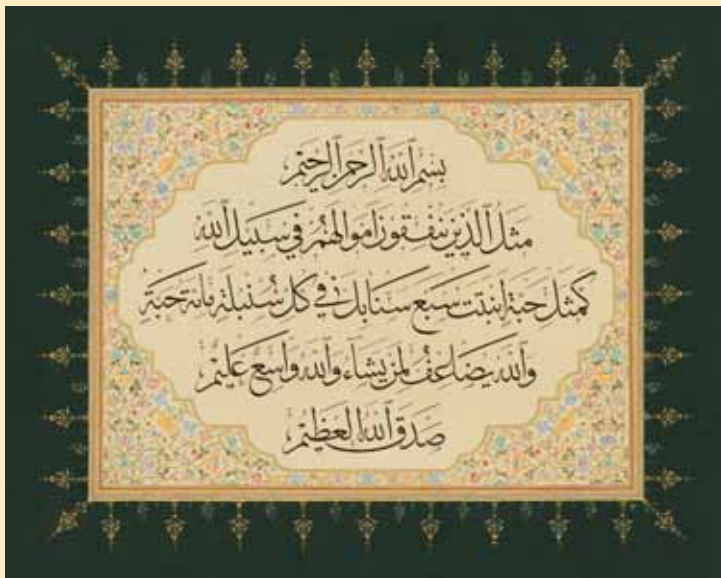 بسم الله الرحمن الرحيم
مثل الذين ينفقون اموالهم في سبيل الله
كمثل حبة انبتت سبع سنابل في كل سنبلة مائة حبة
والله يضاعف لمن يشاء والله واسع عليم
صدق الله العظيم